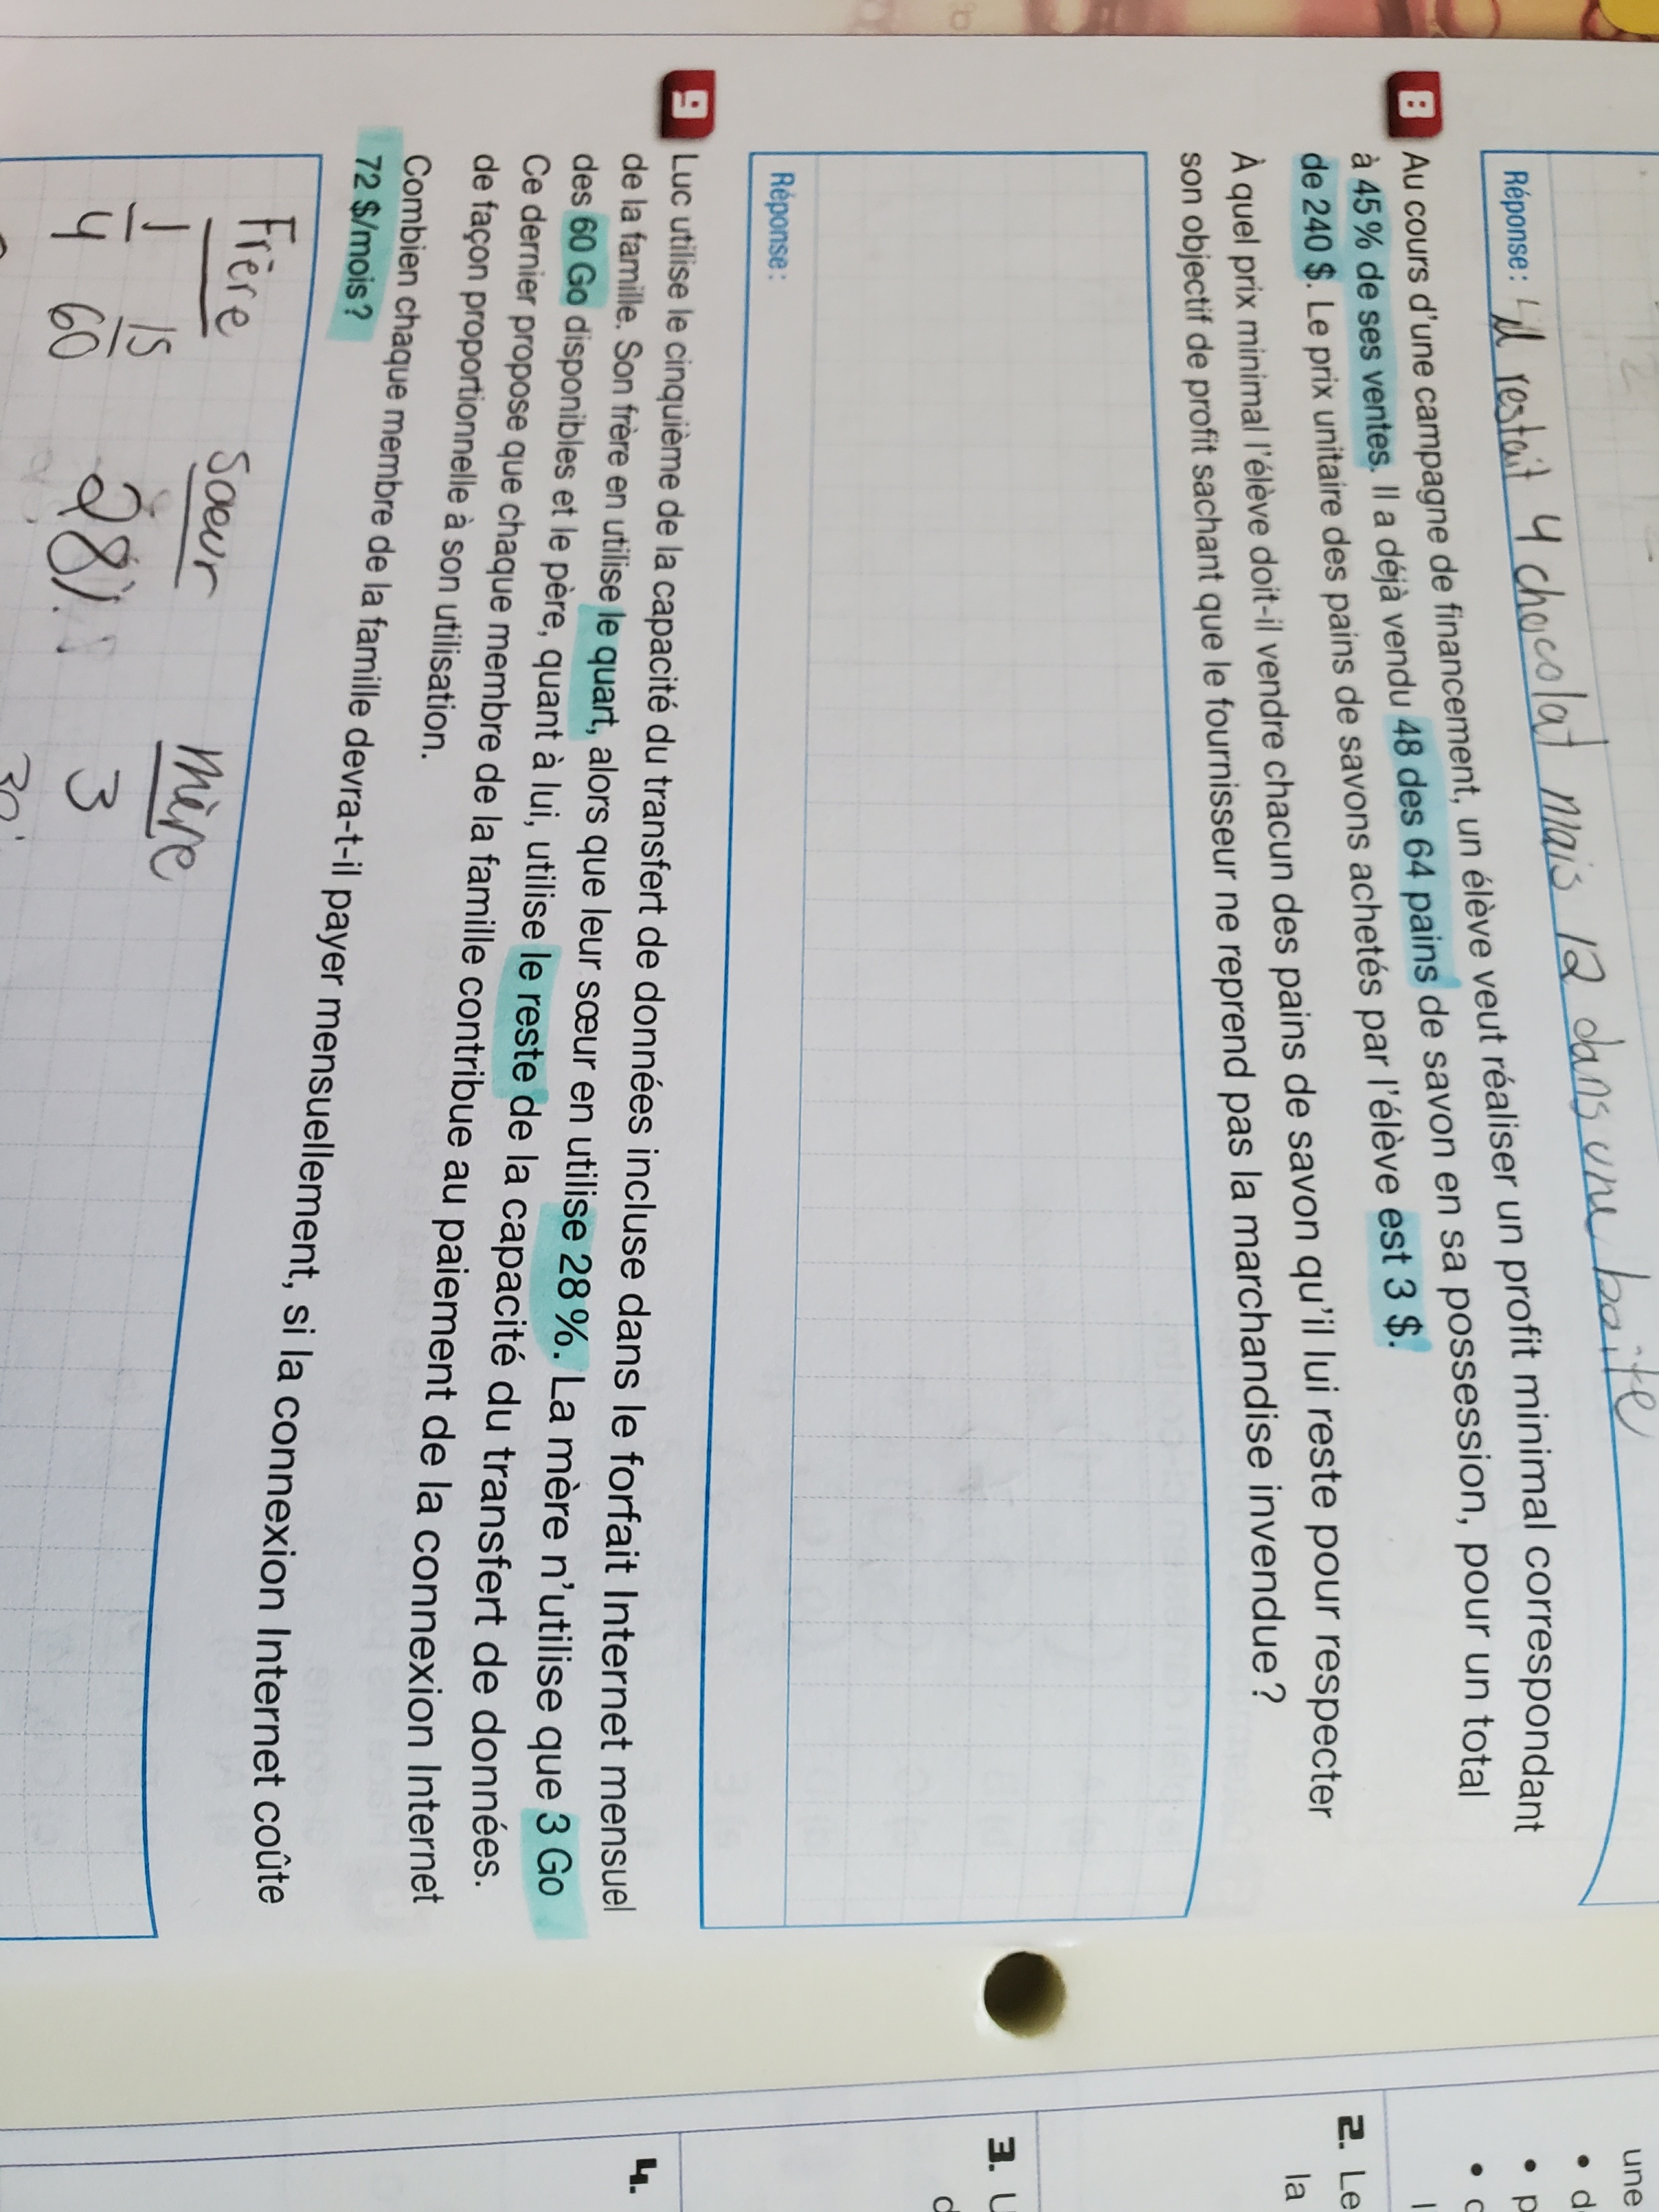 Réponse : Il restait 4 chocolat mais 12 dans une boîte
8 Au cours d'une campagne de financement, un élève veut réaliser un profit minimal correspondant
à 45 % de ses ventes. Il a déjà vendu 48 des 64 pains de savon en sa possession, pour un total
de 240 $. Le prix unitaire des pains de savons achetés par l'élève est 3 $.
À quel prix minimal l'élève doit-il vendre chacun des pains de savon qu'il lui reste pour respecter
son objectif de profit sachant que le fournisseur ne reprend pas la marchandise invendue ?
Réponse :
9 Luc utilise le cinquième de la capacité du transfert de données incluse dans le forfait Internet mensuel
de la famille. Son frère en utilise le quart, alors que leur sœur en utilise 28 %. La mère n'utilise que 3 Go
des 60 Go disponibles et le père, quant à lui, utilise le reste de la capacité du transfert de données.
Ce dernier propose que chaque membre de la famille contribue au paiement de la connexion Internet
de façon proportionnelle à son utilisation.
Combien chaque membre de la famille devra-t-il payer mensuellement, si la connexion Internet coûte
72 $/mois ?
Frère Sœur Mère
1 15 28% 3
4 60
2. Le
la
3.
4.
une